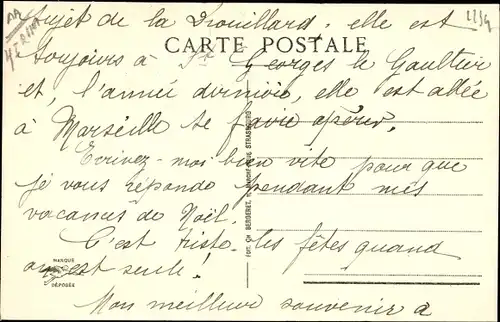 Sujet de la Drouillard, elle est
CARTE POSTALE
toujours à St Georges le Gaultier
et, l'année dernière, elle est allée
à Marseille se faire opérer.
Ecrivez-moi bien vite pour que
je vous réponde pendant mes
vacances de Noël.
C'est triste les fêtes quand
on est seule!
Mon meilleur souvenir à
MARQUE
DÉPOSÉE
EDIT. CH. BERGERET, STRASBOURG